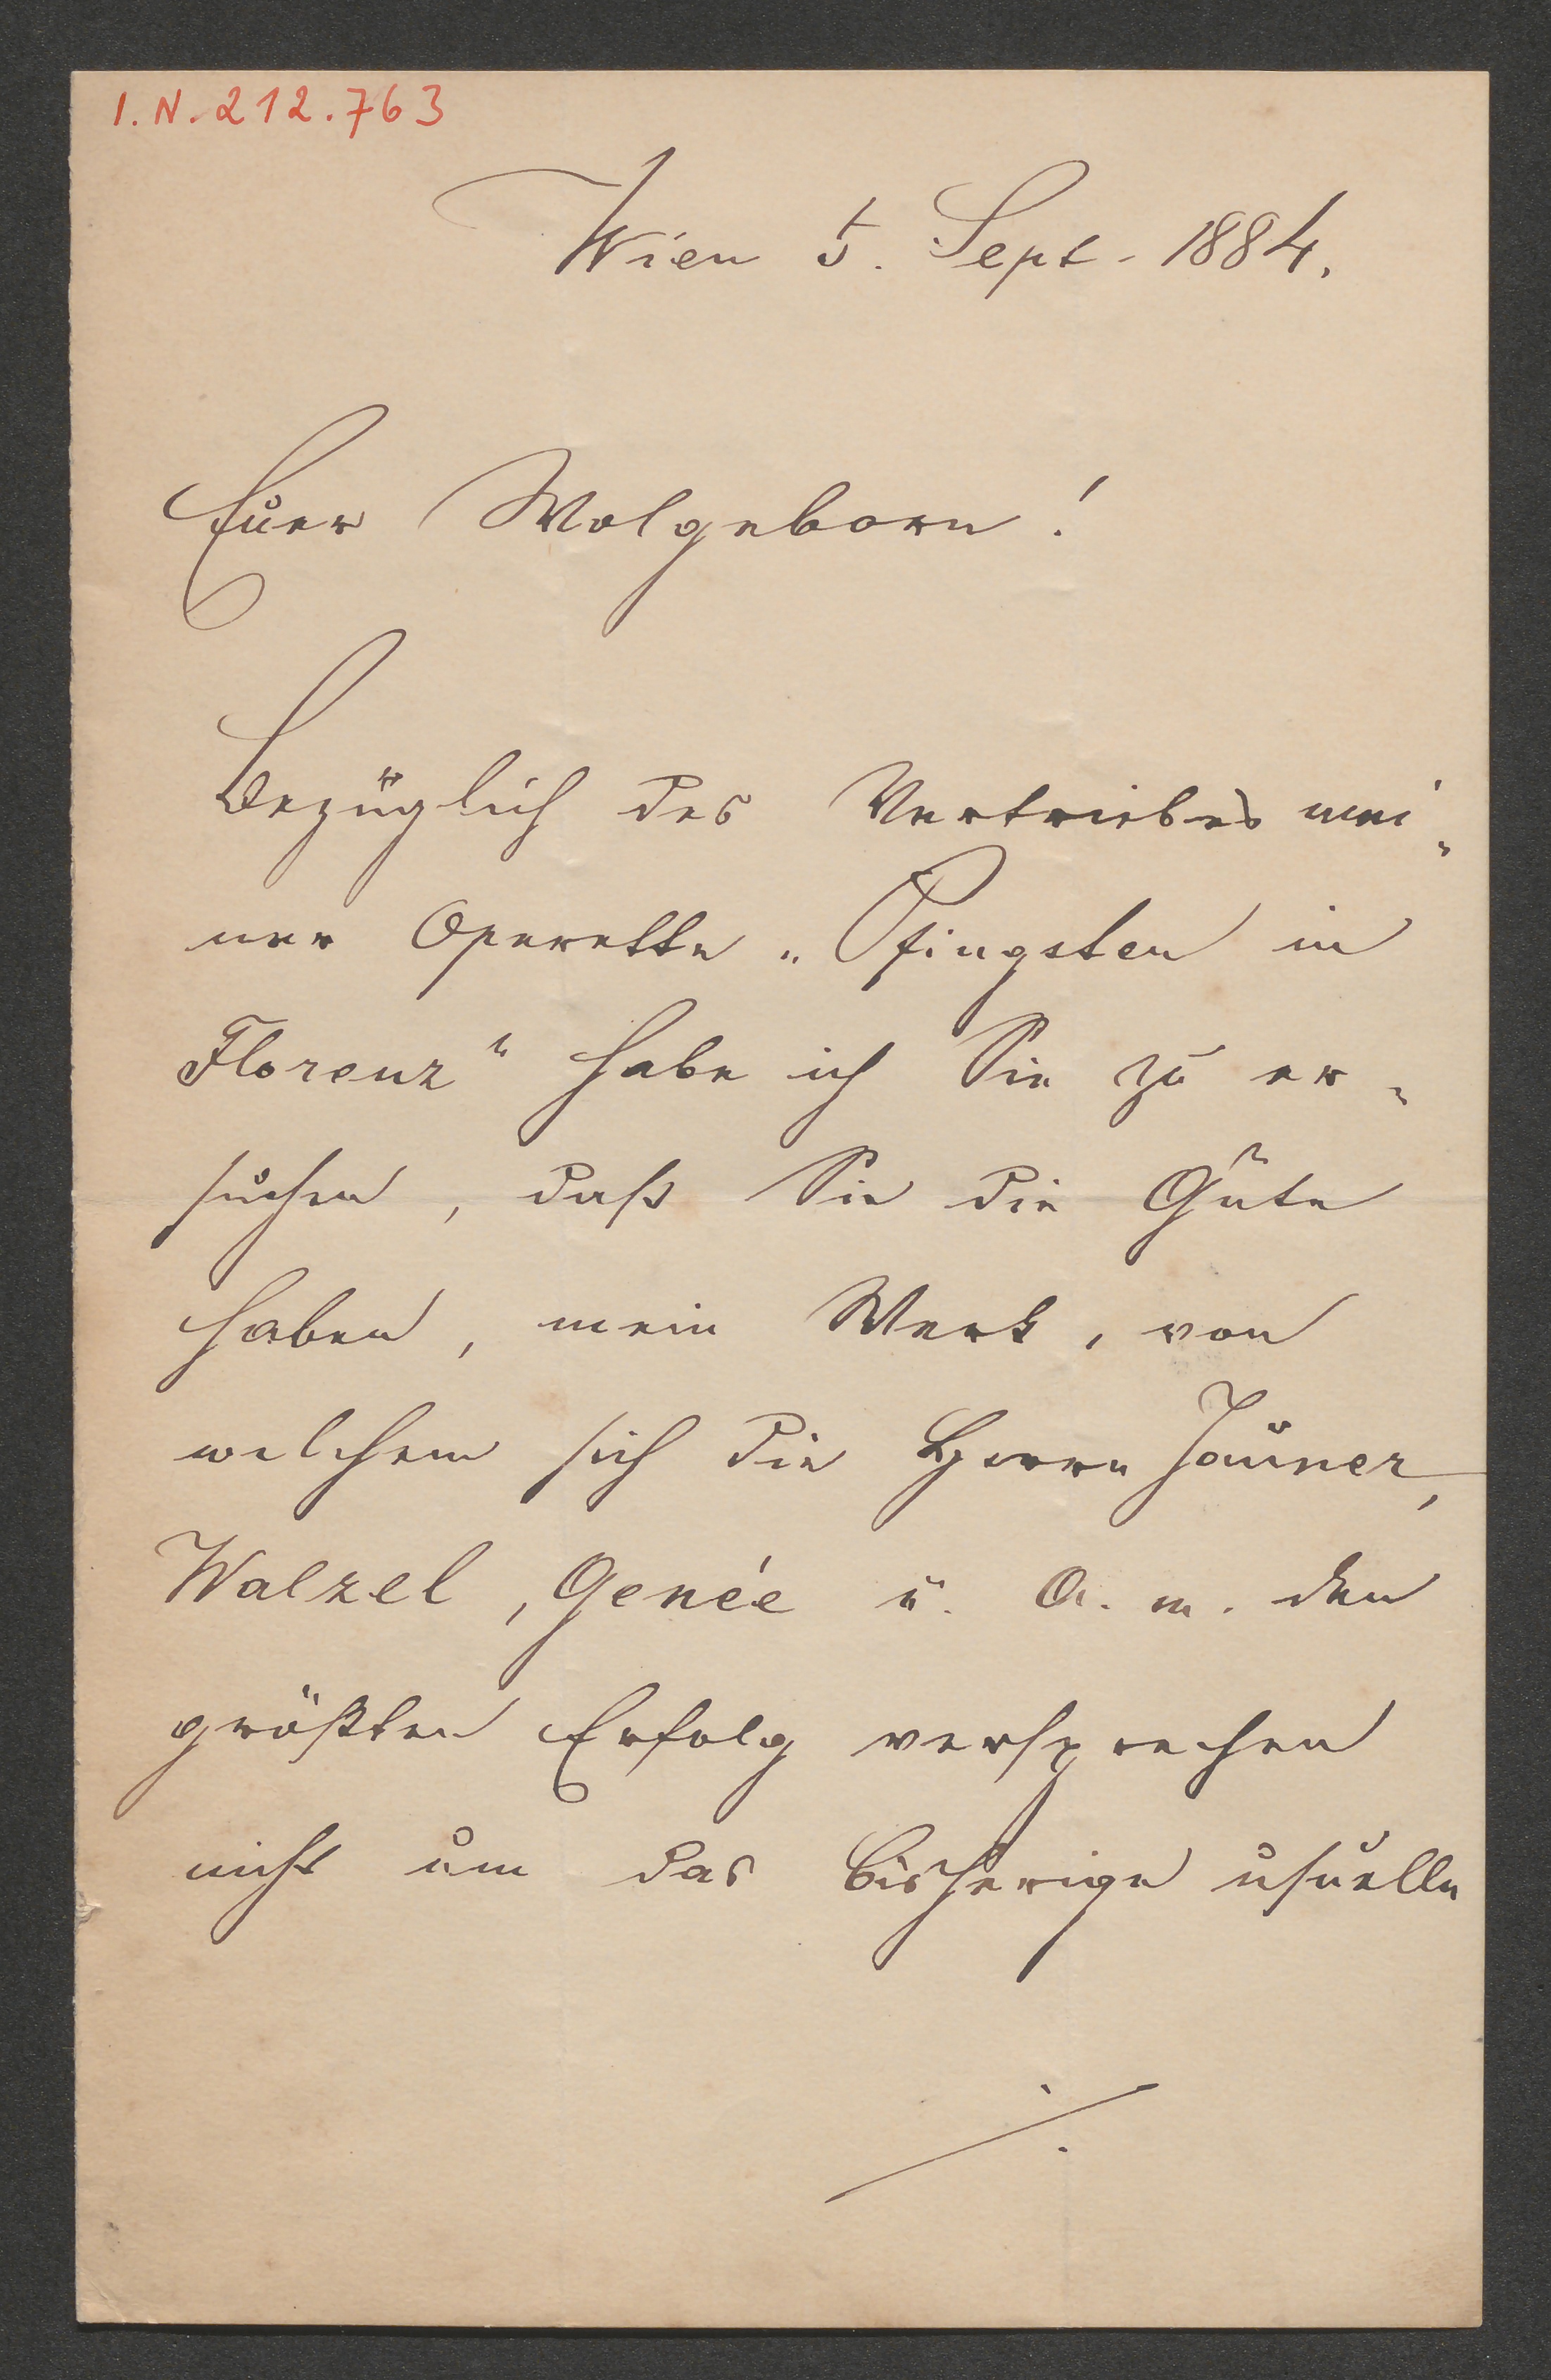 I.N. 212.763
Wien 5. Sept. 1884.
Euer Wolgeborn!
Bezüglich des Vertriebes mei„
ner Operette „Pfingsten in
Florenz“ habe ich Sie zu er„
suchen, daß Sie die Güte
haben, mein Werk, von
welchem sich die Herrn Jauner,
Walzel, Genée u. A. m. den
größten Erfolg versprechen
nicht um das bisherige usuelle
./.